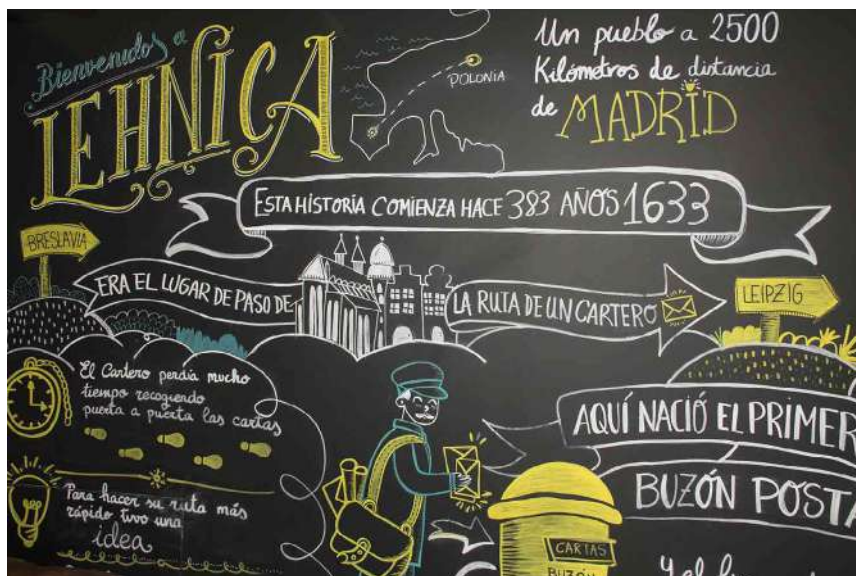 Bienvenidos a
LEHNICA
POLONIA
Un pueblo a 2500
Kilómetros de distancia
de MADRID
ESTA HISTORIA COMIENZA HACE 383 AÑOS 1633
BRESLAVIA
ERA EL LUGAR DE PASO DE
LA RUTA DE UN CARTERO
LEIPZIG
El Cartero perdía mucho
tiempo recogiendo
puerta a puerta las cartas
Para hacer su ruta más
rápido tuvo una
idea
AQUÍ NACIÓ EL PRIMER
BUZÓN POSTA
CARTAS
BUZÓN
Y el